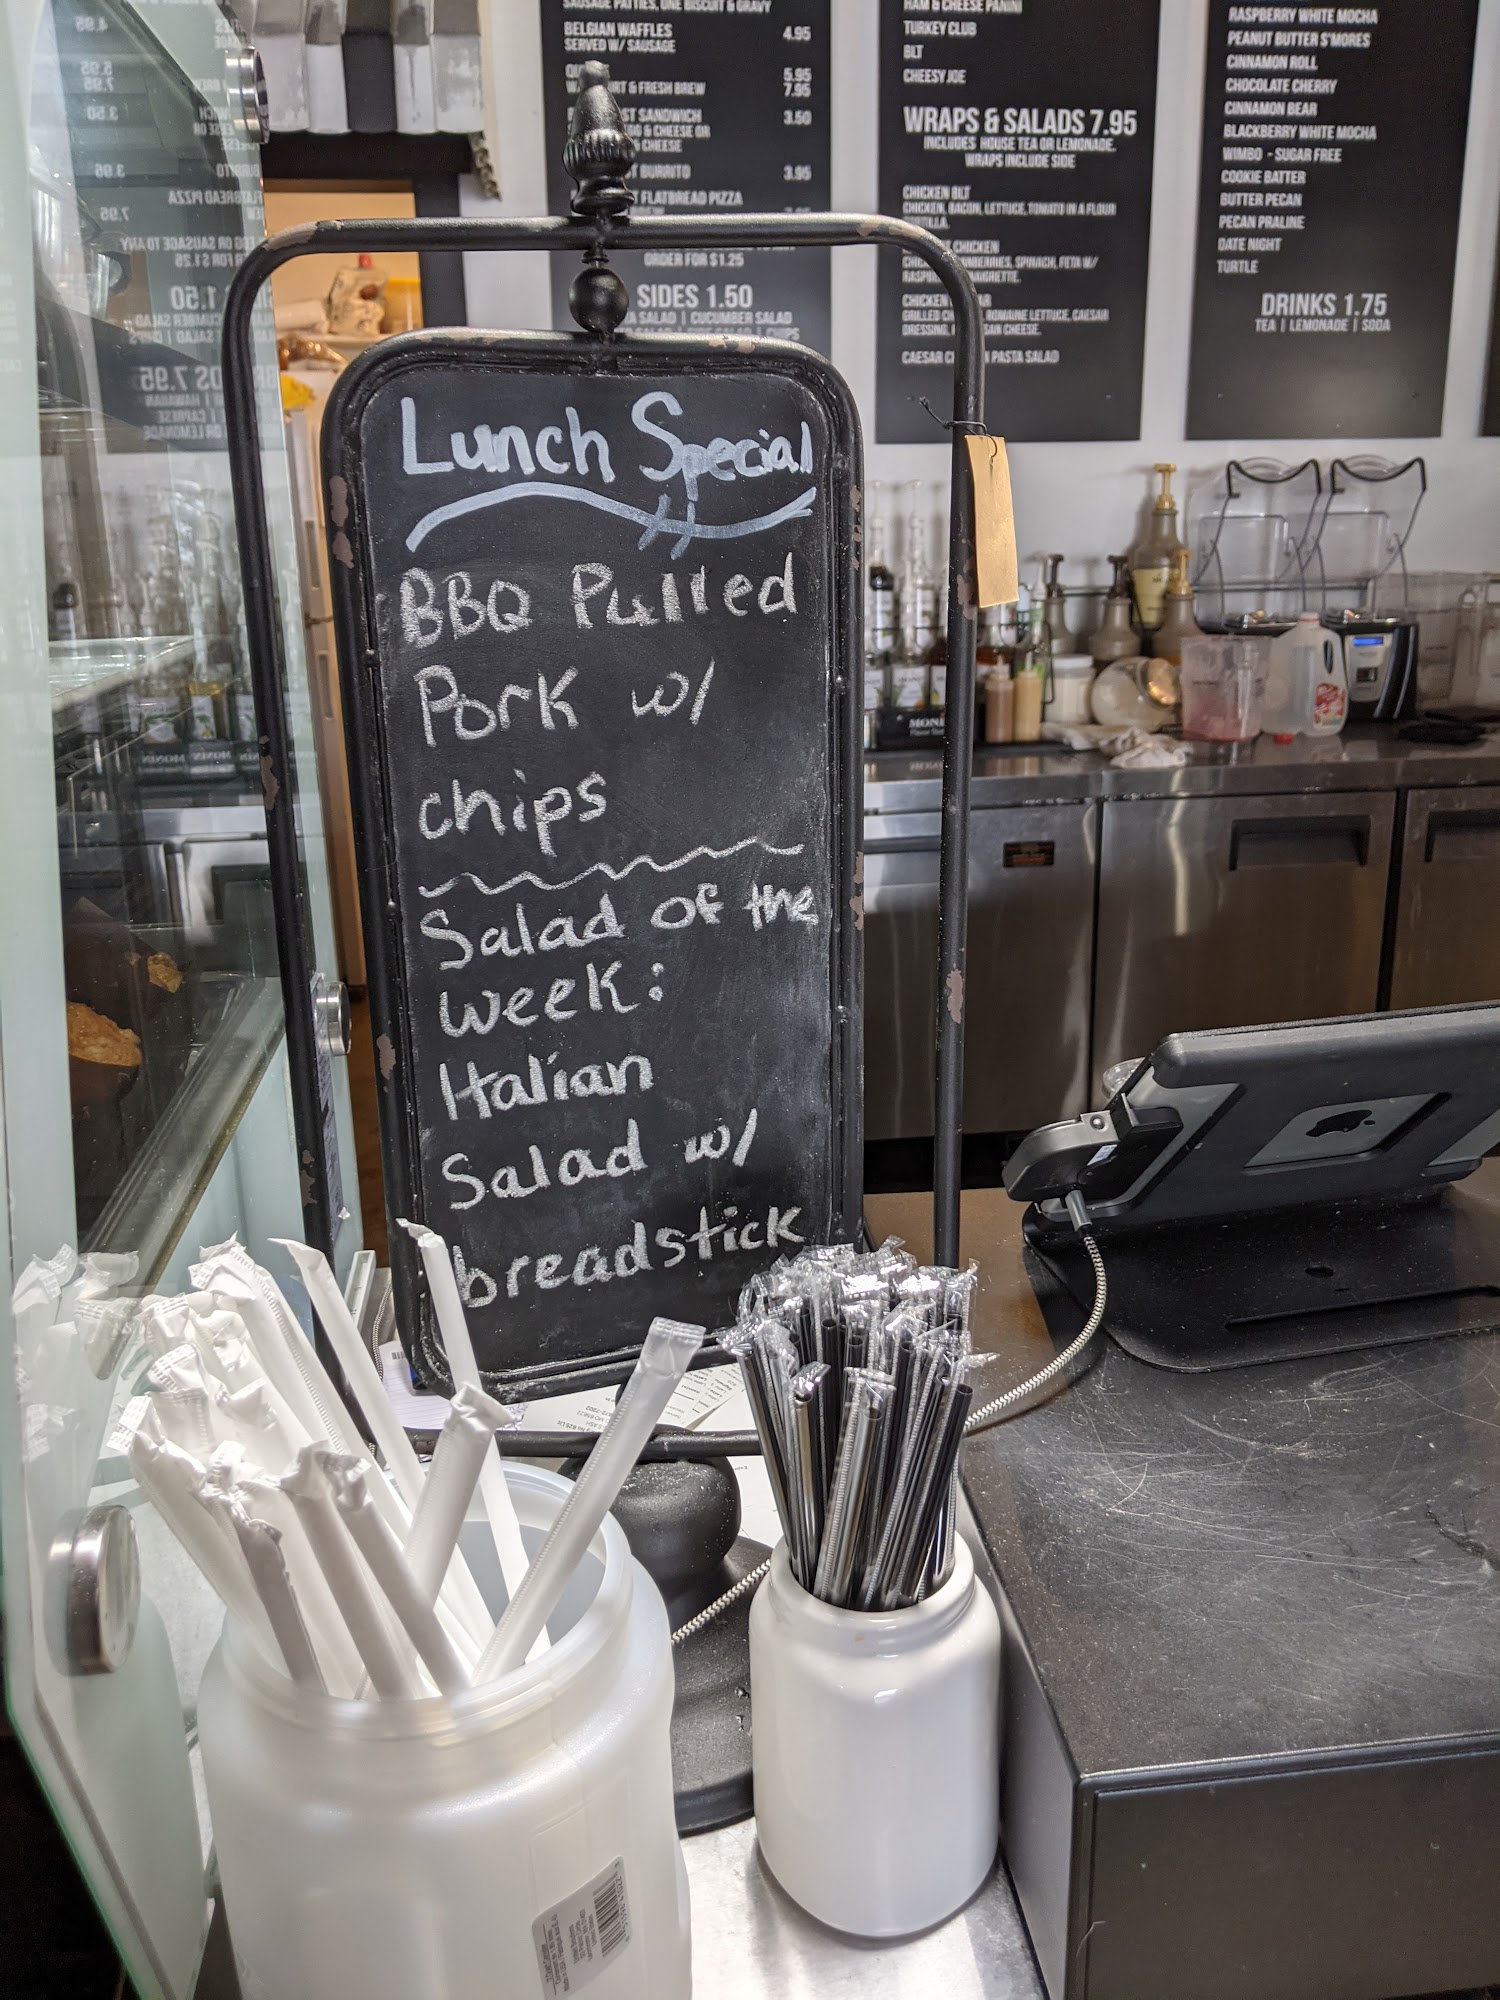 Lunch Special
BBQ Pulled
Pork w/
chips
Salad of the
week:
Italian
Salad w/
breadstick
SAUSAGE PATTIES, ONE BISCUIT & GRAVY
BELGIAN WAFFLES 4.95
SERVED W/ SAUSAGE
5.95
& FRESH BREW 7.95
SANDWICH 3.50
EGG & CHEESE OR
CHEESE
BURRITO 3.95
FLATBREAD PIZZA
ORDER FOR $1.25
SIDES 1.50
SALAD | CUCUMBER SALAD
CHIPS
HAM & CHEESE PANINI
TURKEY CLUB
BLT
CHEESY JOE
WRAPS & SALADS 7.95
INCLUDES HOUSE TEA OR LEMONADE.
WRAPS INCLUDE SIDE
CHICKEN BLT
CHICKEN, BACON, LETTUCE, TOMATO IN A FLOUR
CHICKEN
SPINACH, FETA W/
CHICKEN
GRILLED ROMAINE LETTUCE, CAESAR
DRESSING, CHEESE.
CAESAR PASTA SALAD
RASPBERRY WHITE MOCHA
PEANUT BUTTER S'MORES
CINNAMON ROLL
CHOCOLATE CHERRY
CINNAMON BEAR
BLACKBERRY WHITE MOCHA
WIMBO - SUGAR FREE
COOKIE BATTER
BUTTER PECAN
PECAN PRALINE
DATE NIGHT
TURTLE
DRINKS 1.75
TEA | LEMONADE | SODA